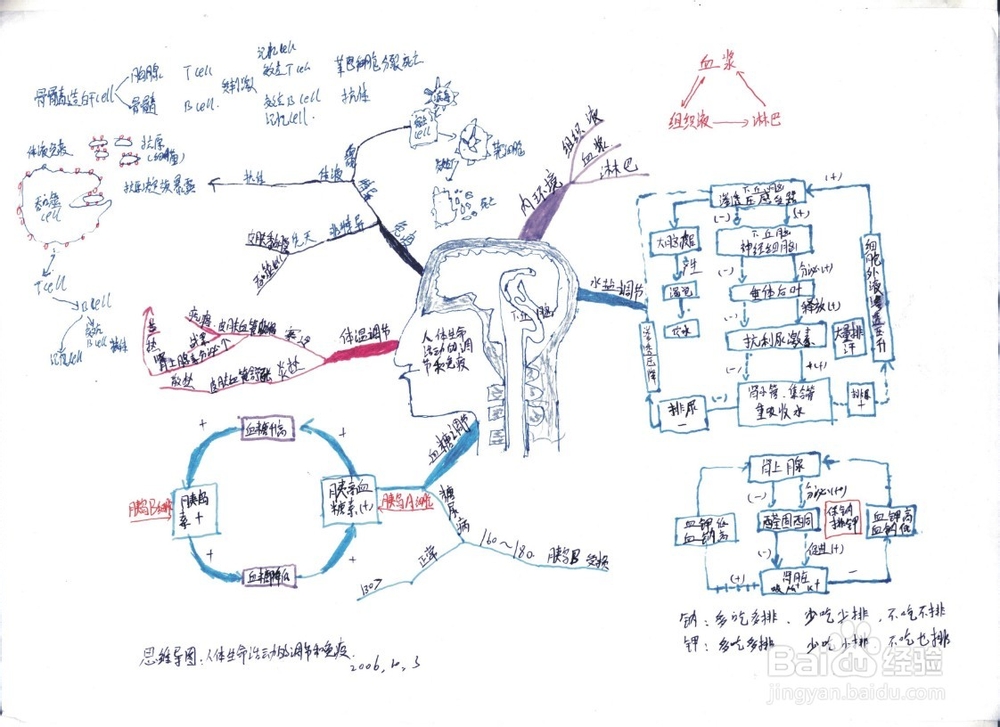 骨髓造血干cell
胸腺 Tcell
骨髓 Bcell
受刺激
记忆cell
效应Tcell
效应Bcell 抗体
记忆cell
血浆
组织液
淋巴
体液免疫
抗原
吞噬
cell
Tcell
Bcell
记忆cell
抗体
体液
免疫
先天
内环境
组织液
血浆
淋巴
水盐调节
下丘脑
渗透压感受器
(-)
(+)
(+)
大脑皮层
产生
渴觉
饮水
下丘脑
神经细胞
(-)
分泌(+)
垂体后叶
(-)
释放(+)
抗利尿激素
大量排汗
(-)
(+)
肾小管、集合管
重吸收水
排尿
-
细胞外液渗透压升
体温调节
寒冷
炎热
散热
产热
肾上腺素分泌↑
人体生命
活动的调
节和免疫
下丘脑
血糖调节
血糖升高
+
+
胰岛
素+
胰岛B细胞
胰高血
糖素(+)
胰岛A细胞
+
+
血糖降低
糖尿病
正常
160~180
胰岛B受损
肾上腺
(-)
分泌(+)
血钾低
血钠高
醛固酮
保钠
排钾
血钾高
血钠低
(-)
促进(+)
肾脏
吸Na+ K+
(+)
-
钠:多吃多排、少吃少排、不吃不排
钾:多吃多排 少吃少排 不吃也排
思维导图:人体生命活动的调节和免疫.
2006.10.3
Baidu经验
jingyan.baidu.com